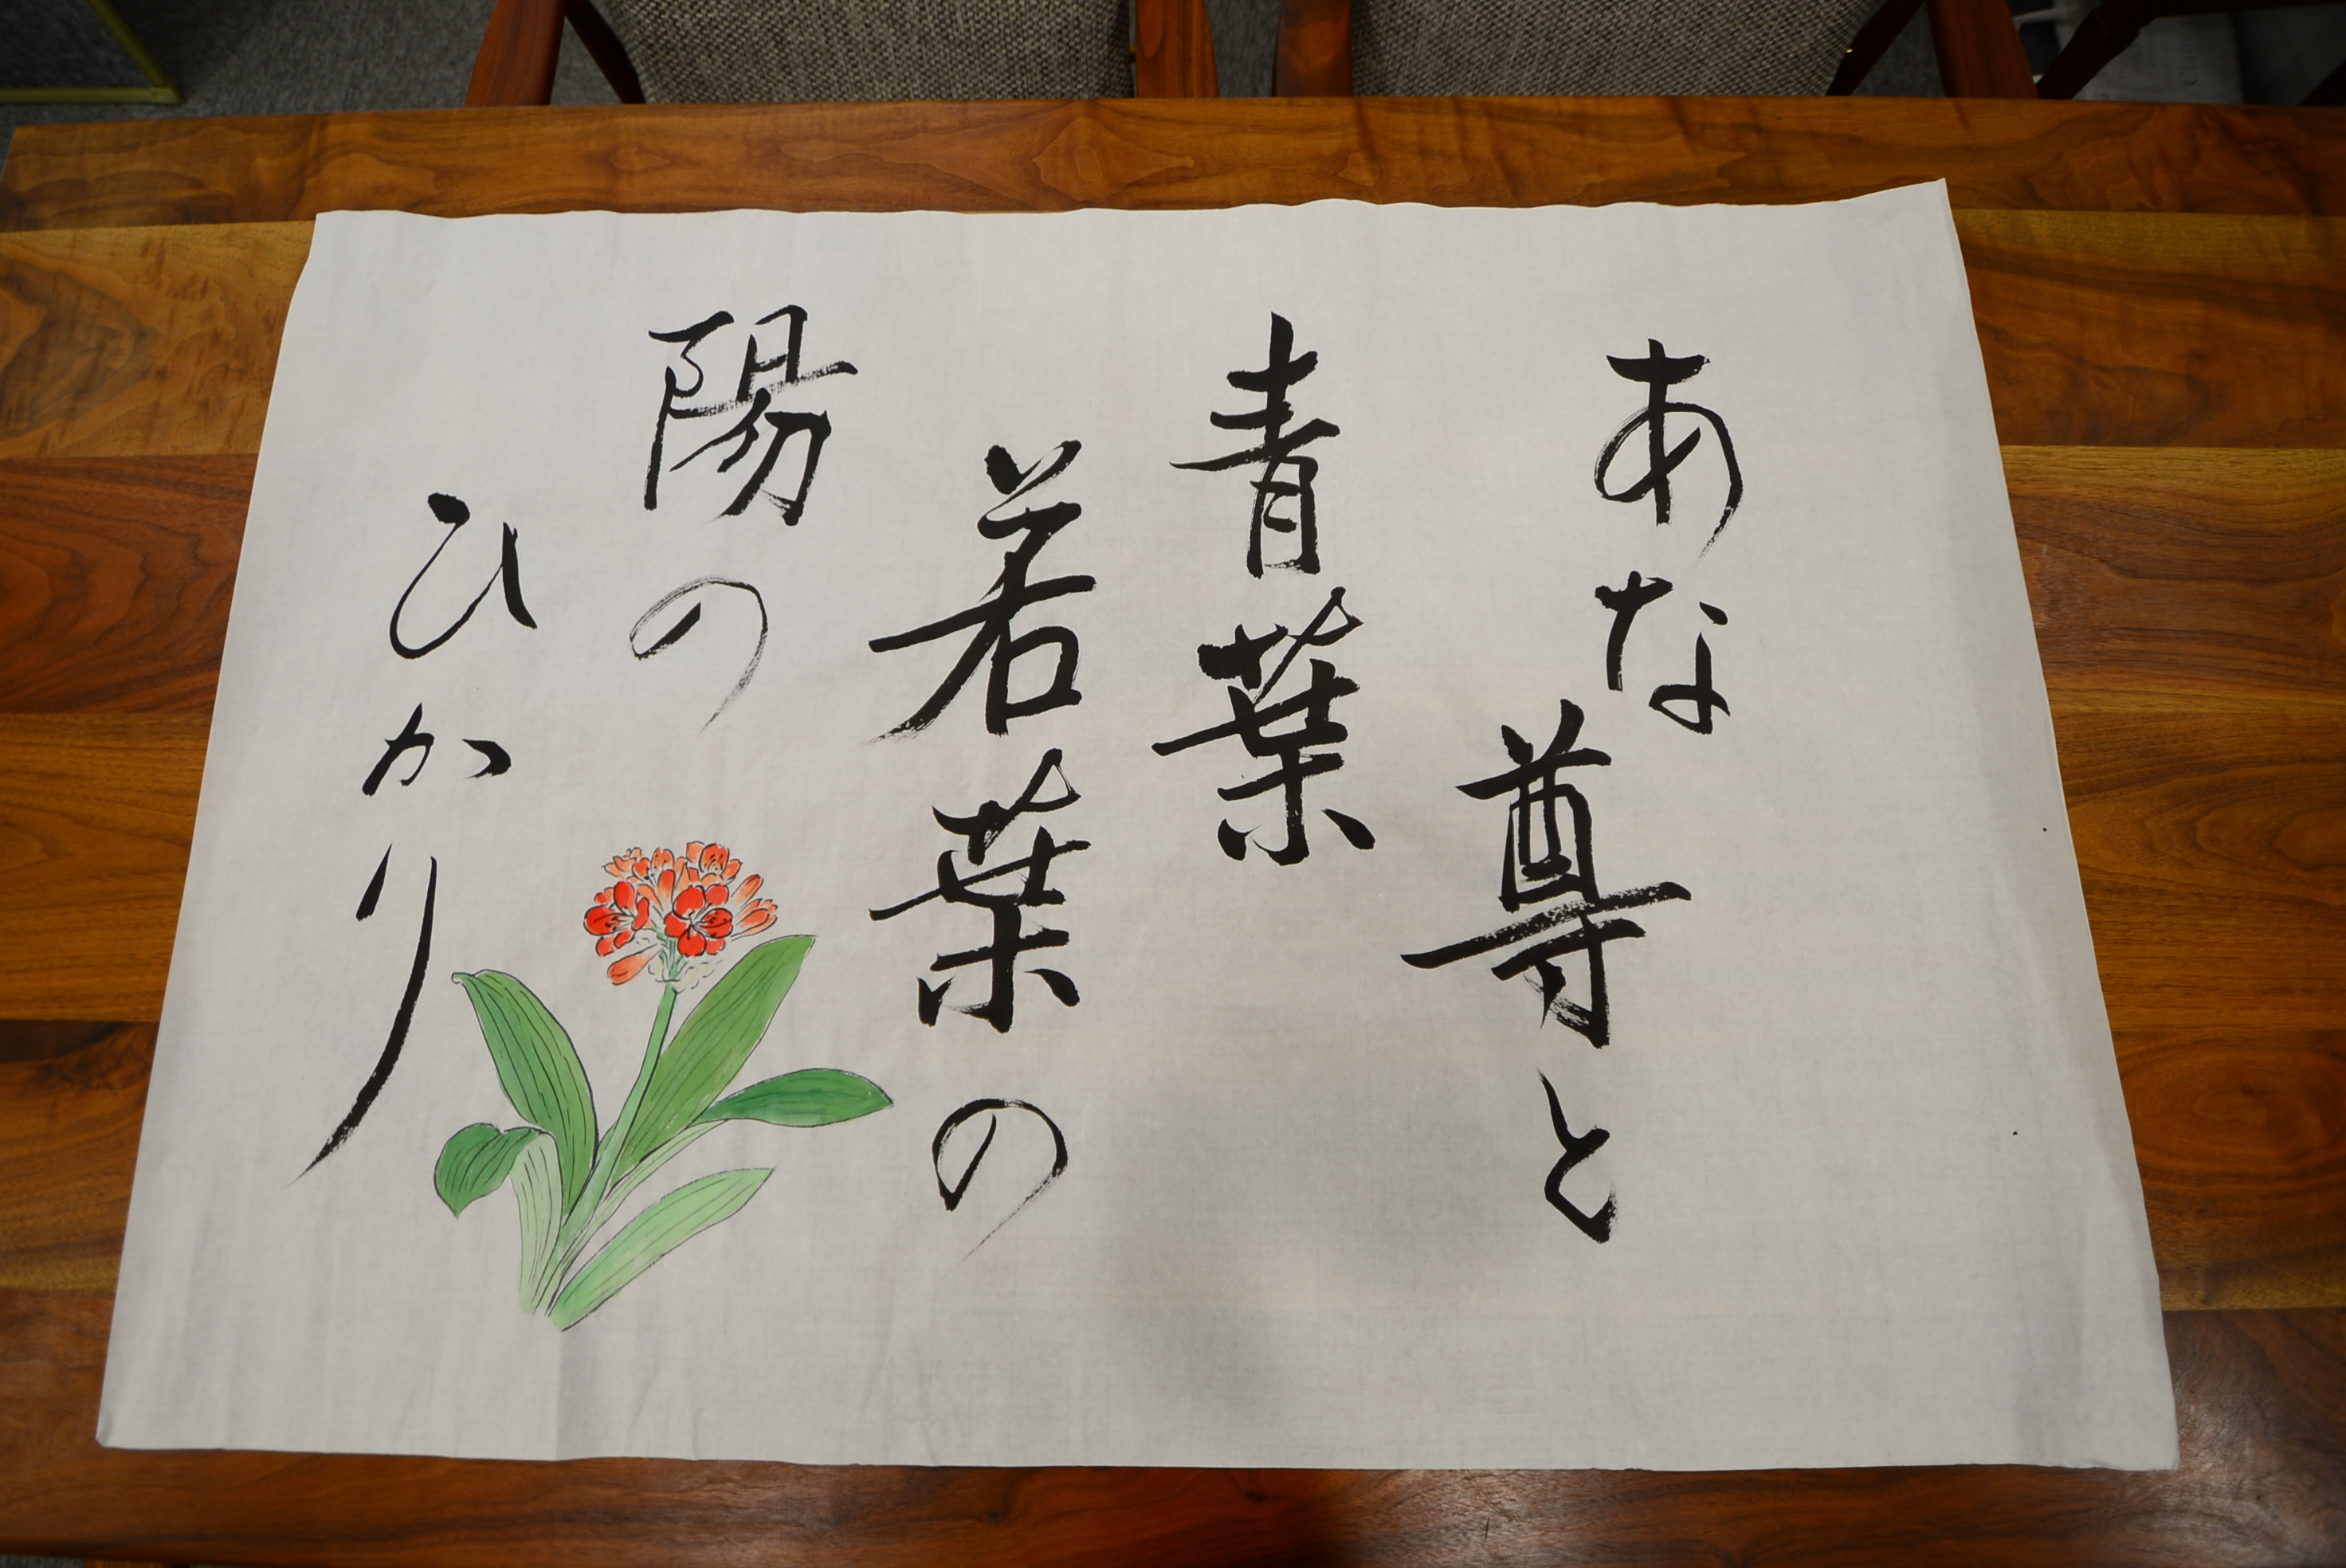 あな尊と
青葉
若葉の
陽の
ひかり